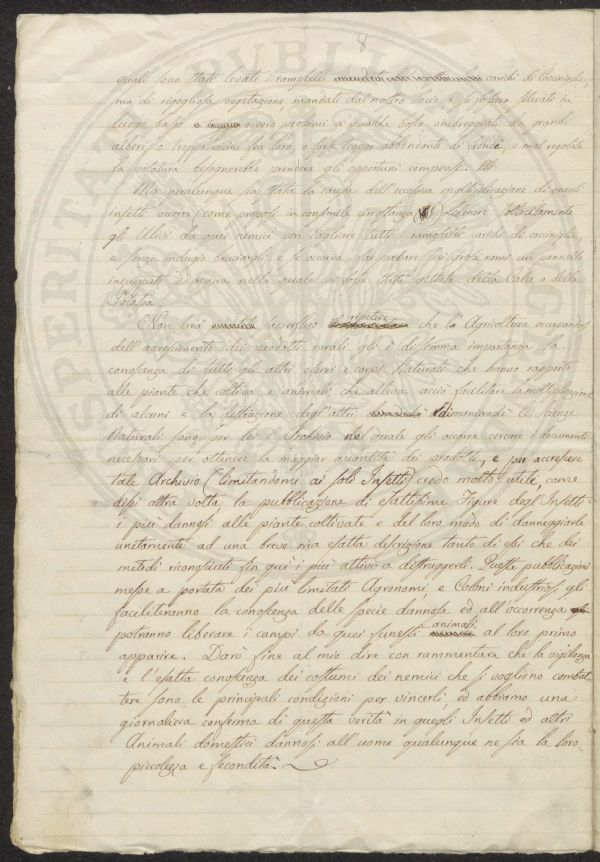 8
quali sono stati levati i ramoscelli carichi di Cocciniglie,
ma di rigogliosa vegetazione mandati dal nostro Socio, e se fossero situati in
luogo basso ovvero prossimi a qualche bosco ombreggiati da grandi
alberi, o troppo vicini fra loro, o forse troppo abbondanti di fronde, o mal regolata
la potatura bisognerebbe prendere gli opportuni compensi.
Ma qualunque sia stata la causa dell'eccessiva moltiplicazione di questi
insetti occorre, come proposi in consimile circostanza liberare sollecitamente
gli Ulivi da quei nemici con tagliare tutti i ramoscelli carichi di cocciniglie,
e senza indugio bruciargli e se occorra far passare sui grossi rami un pennello
inzuppato d'acqua nella quale vi sia stata gettata della Calce o della
Potassa.
Non sarà superfluo ripetere che la Agricoltura occupandosi
dell'accrescimento dei prodotti rurali gli è di somma importanza la
conoscenza di tutti gli altri esseri e corpi Naturali che hanno rapporto
alle piante che coltiva e animali che alleva, acciò facilitare la moltiplicazione
di alcuni e la distruzione degl'altri, dimanierachè le Scienze
Naturali sono per lei l'Archivio nel quale gli occorre cercare i documenti
necessari per ottenere la maggior quantità dei prodotti, e per accrescere
tale Archivio (limitandomi ai soli Insetti) credo molto utile, come
dissi altra volta, la pubblicazione di esattissime Figure degl'Insetti
i più dannosi alle piante coltivate e del loro modo di danneggiarle
unitamente ad una breve ma esatta descrizione tanto di essi che dei
metodi riconosciuti fin qui i più attivi a distruggerli. Queste pubblicazioni
messe a portata dei più limitati Agronomi, e Coloni industriosi gli
faciliteranno la conoscenza delle specie dannose ed all'occorrenza
potranno liberare i campi da quei funesti animali al loro primo
apparire. Darò fine al mio dire con rammentare che la vigilanza
e l'esatta conoscenza dei costumi dei nemici che si vogliono combat
tere sono le principali condizioni per vincerli, ed abbiamo una
giornaliera conferma di questa verità in quegli Insetti ed altri
Animali domestici dannosi all'uomo qualunque ne sia la loro
piccolezza e fecondità.